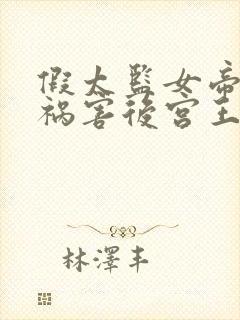 假太監女帝
禍害後宮王
林澤丰